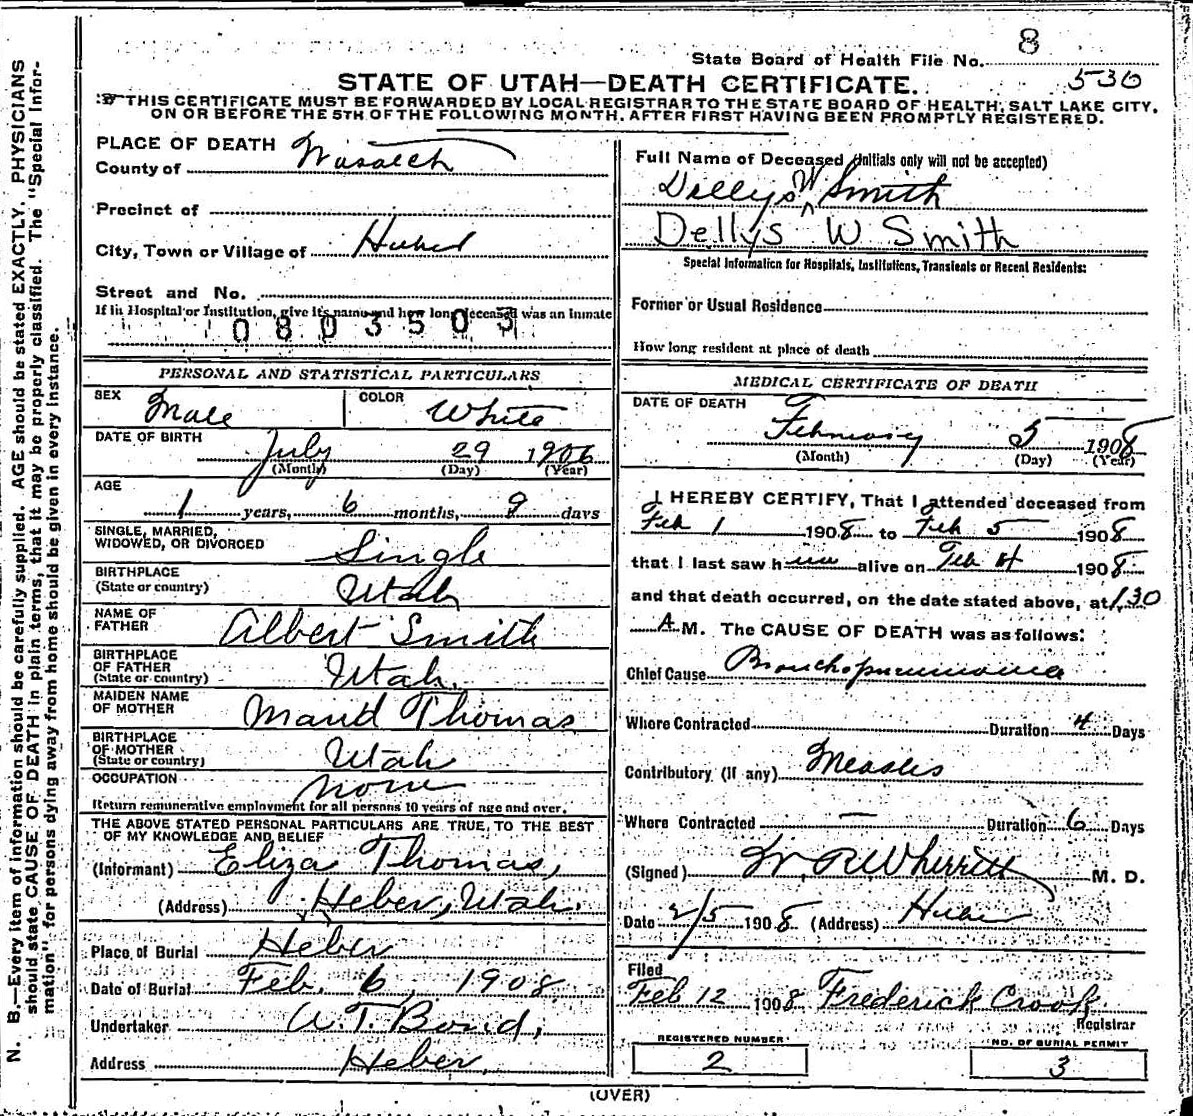 8
State Board of Health File No.
530
STATE OF UTAH—DEATH CERTIFICATE.
THIS CERTIFICATE MUST BE FORWARDED BY LOCAL REGISTRAR TO THE STATE BOARD OF HEALTH, SALT LAKE CITY,
ON OR BEFORE THE 5TH OF THE FOLLOWING MONTH, AFTER FIRST HAVING BEEN PROMPTLY REGISTERED.
N. B.—Every item of information should be carefully supplied. AGE should be stated EXACTLY. PHYSICIANS
should state CAUSE OF DEATH in plain terms, that it may be properly classified. The "Special Infor-
mation" for persons dying away from home should be given in every instance.
PLACE OF DEATH
County of Wasatch
Precinct of
City, Town or Village of Heber
Street and No.
If in Hospital or Institution, give its name and how long deceased was an inmate
0803505
PERSONAL AND STATISTICAL PARTICULARS
SEX Male COLOR White
DATE OF BIRTH July 29 1906
(Month) (Day) (Year)
AGE
1 years, 6 months, 9 days
SINGLE, MARRIED,
WIDOWED, OR DIVORCED Single
BIRTHPLACE
(State or country) Utah
NAME OF
FATHER Albert Smith
BIRTHPLACE
OF FATHER
(State or country) Utah.
MAIDEN NAME
OF MOTHER Maud Thomas
BIRTHPLACE
OF MOTHER
(State or country) Utah
OCCUPATION none
Return remunerative employment for all persons 10 years of age and over.
THE ABOVE STATED PERSONAL PARTICULARS ARE TRUE, TO THE BEST
OF MY KNOWLEDGE AND BELIEF
(Informant) Eliza Thomas,
(Address) Heber, Utah.
Place of Burial Heber
Date of Burial Feb. 6, 1908
Undertaker A.T. Bond,
Address Heber.
Full Name of Deceased (Initials only will not be accepted)
Dellys W Smith
Dellys W Smith
Special Information for Hospitals, Institutions, Transients or Recent Residents:
Former or Usual Residence
How long resident at place of death
MEDICAL CERTIFICATE OF DEATH
DATE OF DEATH
February 5 1908
(Month) (Day) (Year)
I HEREBY CERTIFY, That I attended deceased from
Feb 1 1908 to Feb 5 1908
that I last saw him alive on Feb 4 1908
and that death occurred, on the date stated above, at 1.30
A.M. The CAUSE OF DEATH was as follows:
Chief Cause Bronchopneumonia
Where Contracted Duration 4 Days
Contributory (If any) Measles
Where Contracted — Duration 6 Days
(Signed) W. R. Wherritt M. D.
Date 2/5 1908 (Address) Heber
Filed
Feb 12 1908 Frederick Crook
Registrar
REGISTERED NUMBER
2
NO. OF BURIAL PERMIT
3
(OVER)